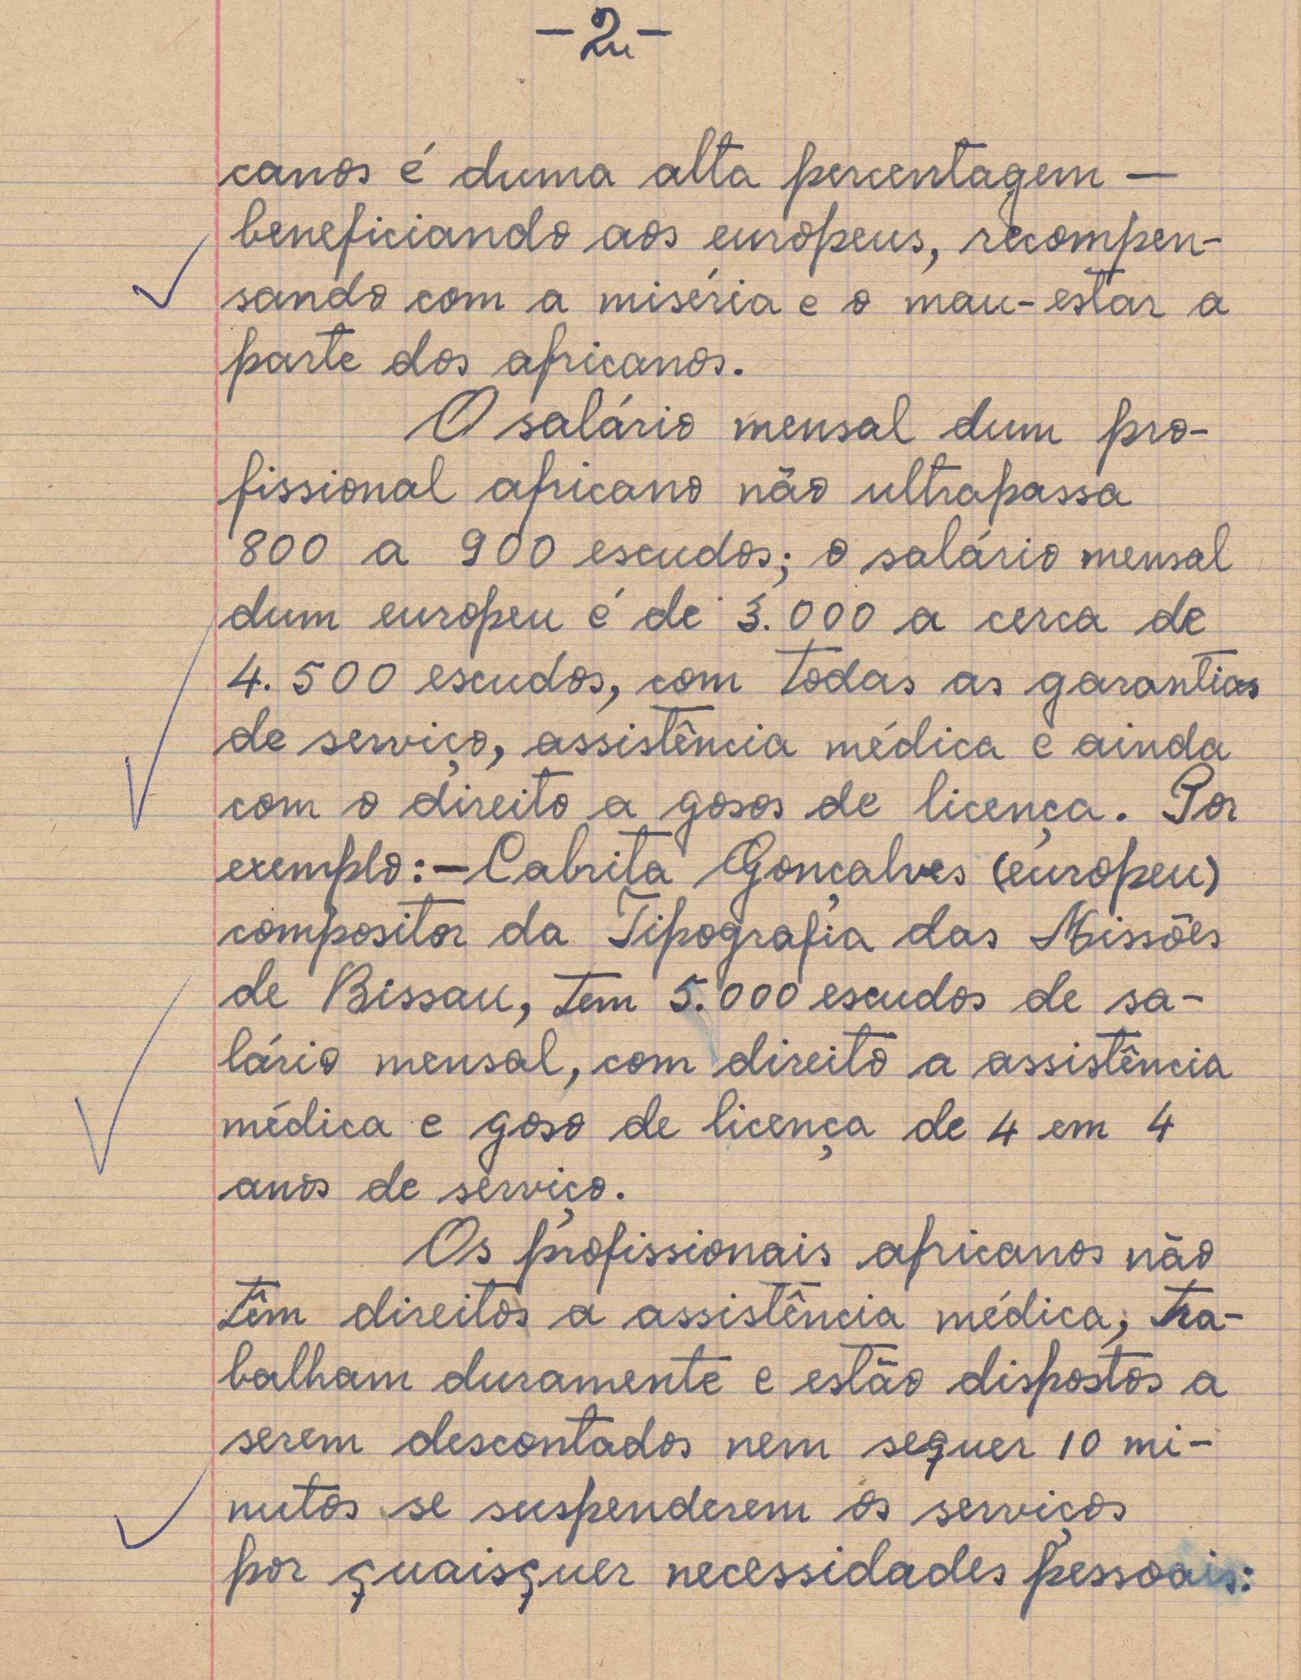 -2-
canos é duma alta percentagem —
beneficiando aos europeus, recompen-
sando com a miséria e o mau-estar a
parte dos africanos.
O salário mensal dum pro-
fissional africano não ultrapassa
800 a 900 escudos; o salário mensal
dum europeu é de 3.000 a cerca de
4.500 escudos, com todas as garantias
de serviço, assistência médica e ainda
com o direito a gosos de licença. Por
exemplo:-Cabrita Gonçalves (europeu)
compositor da Tipografia das Missões
de Bissau, tem 5.000 escudos de sa-
lário mensal, com direito a assistência
médica e goso de licença de 4 em 4
anos de serviço.
Os profissionais africanos não
têm direitos a assistência médica, tra-
balham duramente e estão dispostos a
serem descontados nem sequer 10 mi-
nutos se suspenderem os serviços
por quaisquer necessidades pessoais: